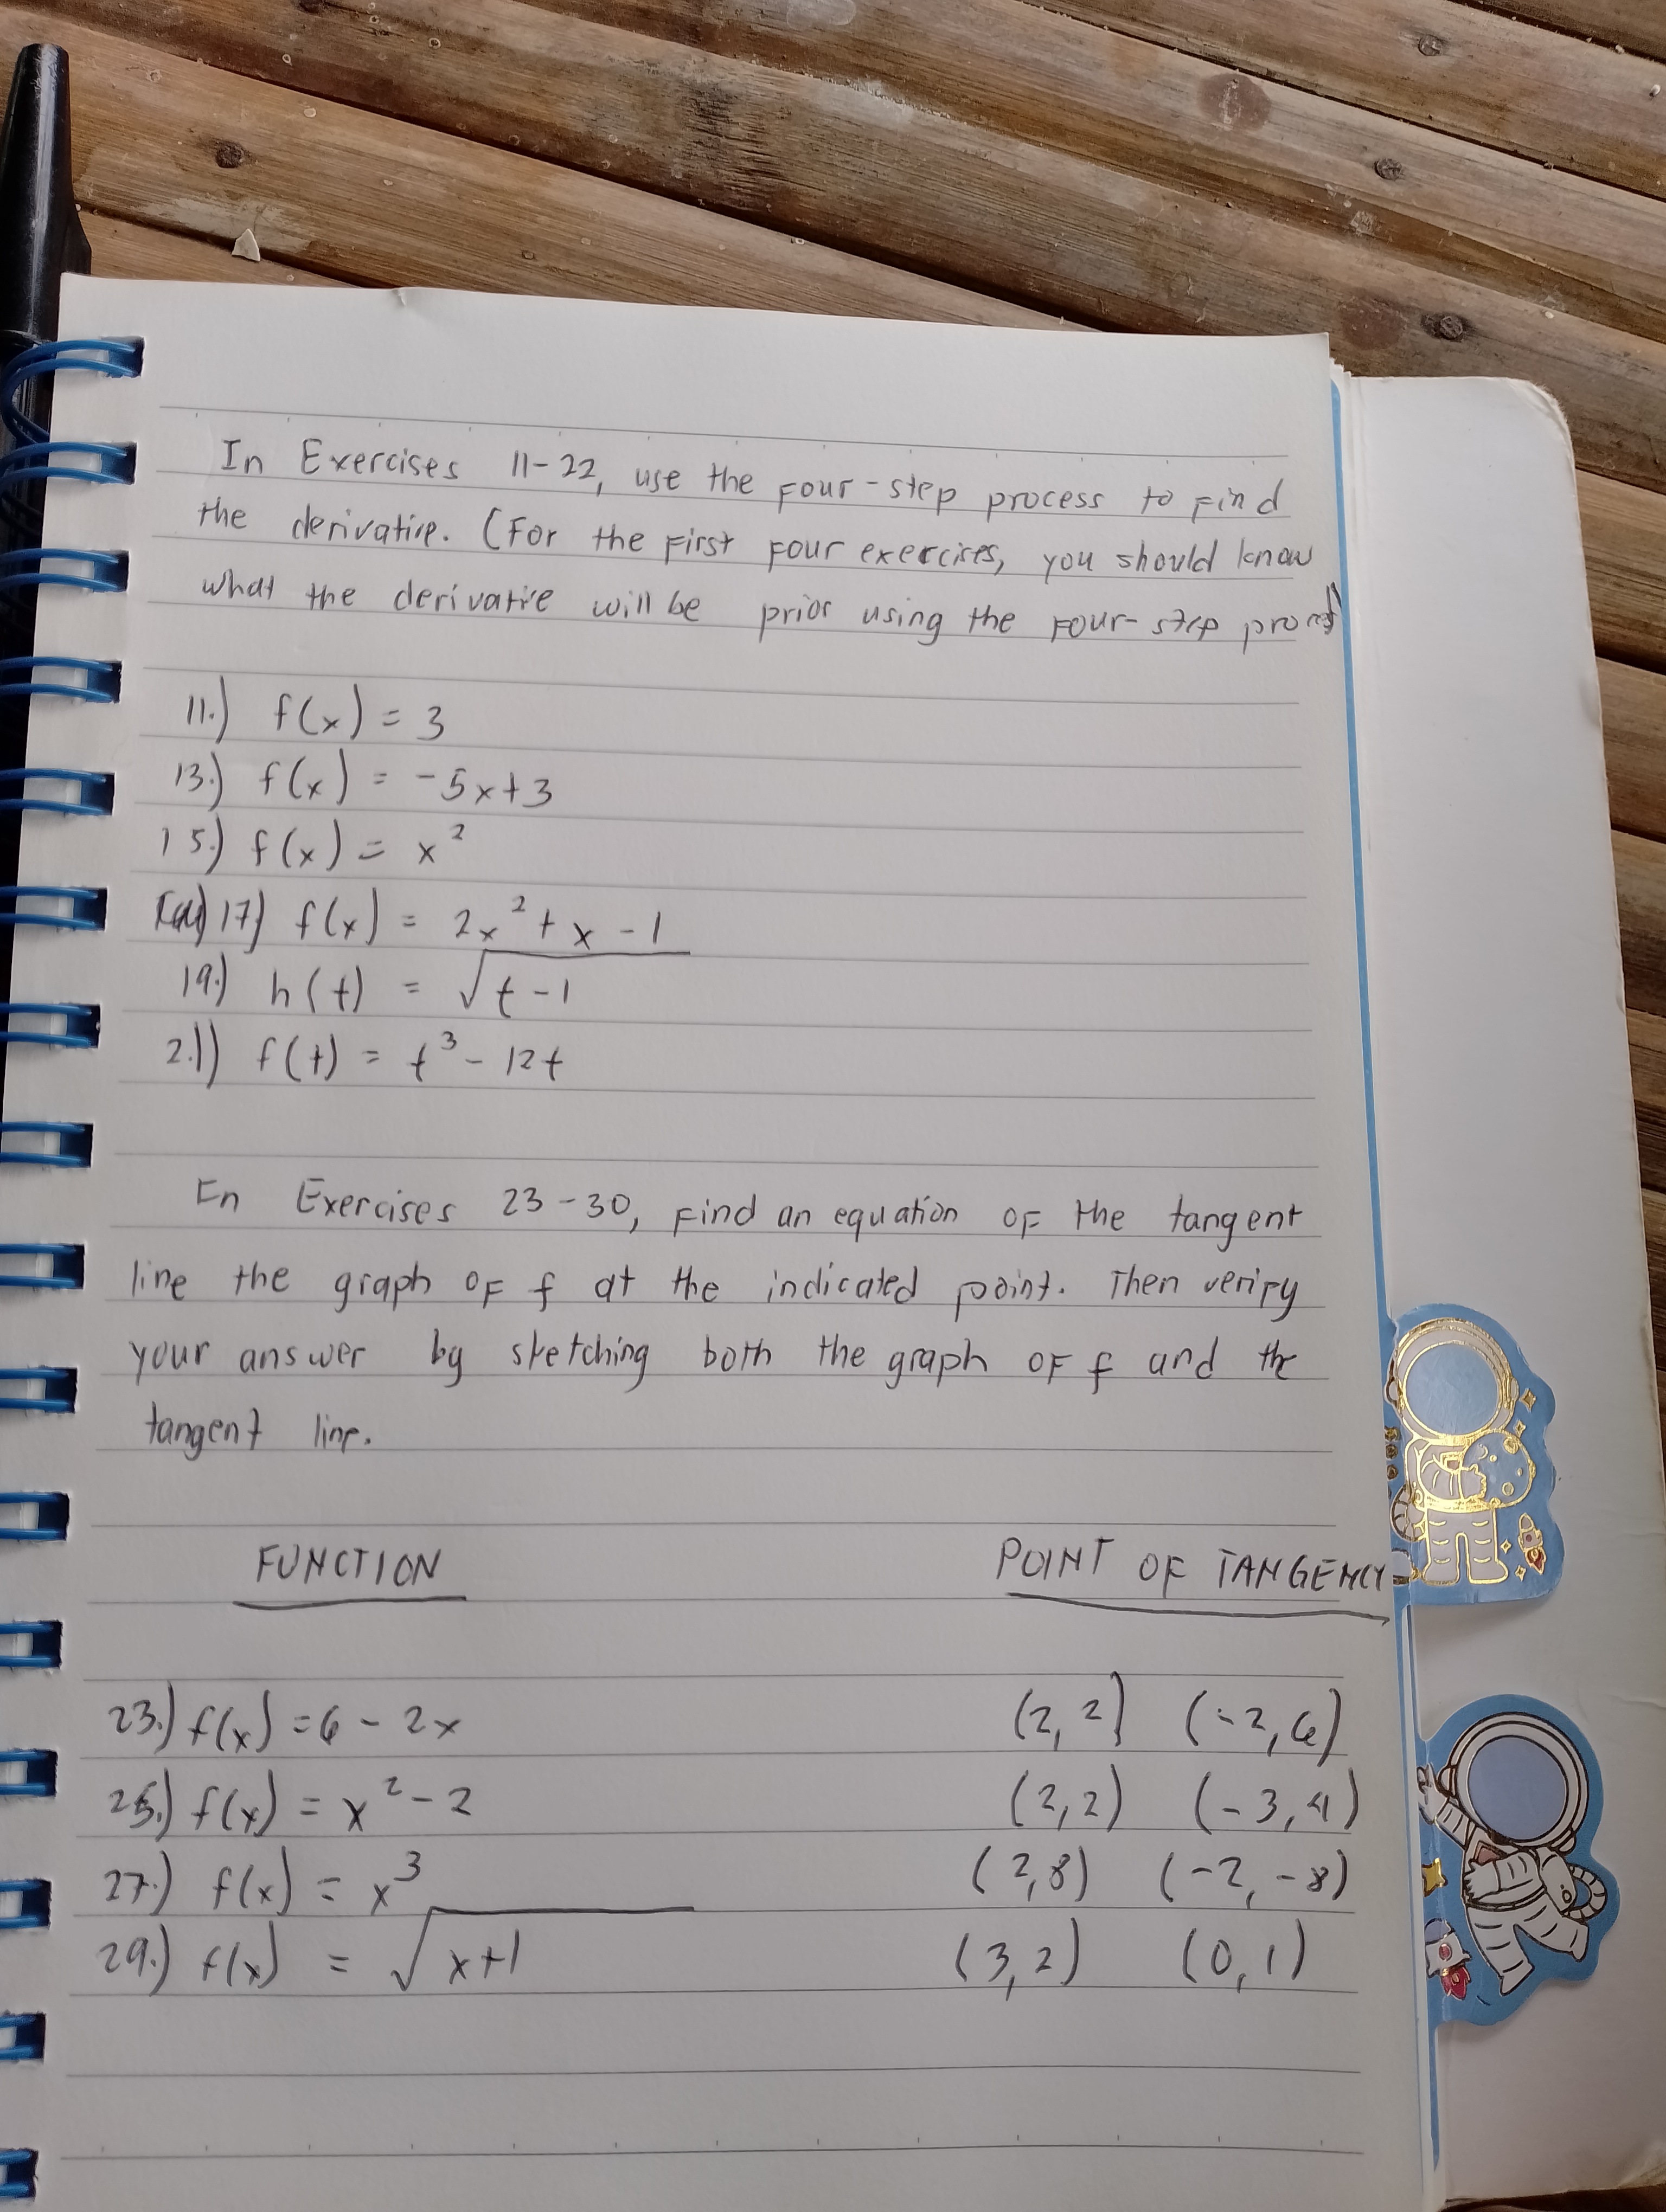 In Exercises 11-22, use the four-step process to find
the derivative. (For the first four exercises, you should know
what the derivative will be prior using the four-step
11.) f(x) = 3
13.) f(x) = -5x+3
15.) f(x) = x²
17) f(x) = 2x² + x - 1
19.) h(t) = √t-1
21) f(t) = t³ - 12t
In Exercises 23-30, find an equation of the tangent
line the graph of f at the indicated point. Then verify
your answer by sketching both the graph of f and the
tangent line.
FUNCTION POINT OF TANGENCY
23.) f(x) = 6 - 2x (2, 2) (-2, 6)
25.) f(x) = x² - 2 (2, 2) (-3, 4)
27.) f(x) = x³ (2, 8) (-2, -8)
29.) f(x) = √x+1 (3, 2) (0, 1)